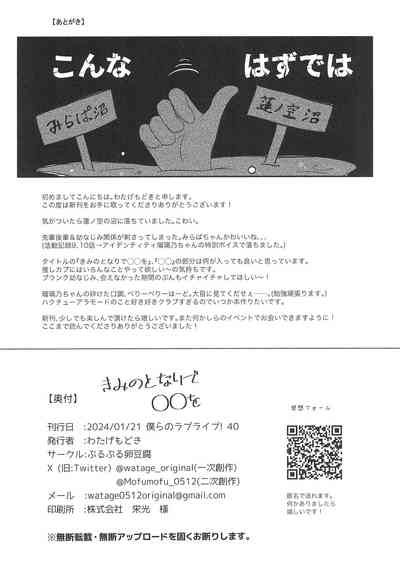 【あとがき】
こんな はずでは
みらぱ沼
蓮ノ空沼
初めましてこんにちは。わたげもどきと申します。
この度は新刊をお手に取ってくださりありがとうございます！
気がついたら蓮ノ空の沼に落ちていました。こわい。
先輩後輩&幼なじみ関係が刺さってしまった。みらぱちゃんかわいいね、、、
(活動記録9,10話→アイデンティティ瑠璃乃ちゃんの特別ボイスで落ちました。)
タイトルの『きみのとなりで〇〇を』。「〇〇」の部分は何が入っても良いと思っています。
推しカプにはいろんなことやって欲しい〜の気持ちです。
ブランク幼なじみ、会えなかった期間のぶんもイチャイチャしてほしい〜！
瑠璃乃ちゃんの砕けた口調、べりーべりーはーど。大目に見てくだせぇ……。(勉強頑張ります。)
ハクチューアラモードのこと好き好きクラブすぎるのでいつか本作りたいです。
新刊、少しでも楽しんで頂けたら嬉しいです。また何かしらのイベントでお会いできますように！
ここまで読んでくださりありがとうございました！
きみのとなりで
〇〇を
【奥付】
感想フォーム
刊行日 :2024/01/21 僕らのラブライブ! 40
発行者 :わたげもどき
サークル:ぷるぷる卵豆腐
X (旧:Twitter) @watage_original(一次創作)
@Mofumofu_0512(二次創作)
メール :watage0512original@gmail.com
印刷所 :株式会社 栄光 様
匿名で送れます。
何かありましたら
嬉しいです！
※無断転載・無断アップロードを固くお断りします。